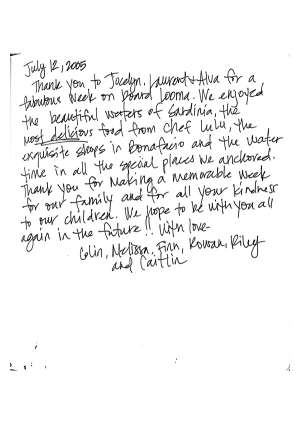 July 12, 2005
Thank you to Jocelyn, Laurent & Alva for a
fabulous week on board Looma. We enjoyed
the beautiful waters of Sardinia, the
most delicious food from Chef Lulu, the
exquisite shops in Bonafacio and the water
time in all the special places we anchored.
Thank you for making a memorable week
for our family and for all your kindness
to our children. We hope to be with you all
again in the future!! With love-
Colin, Melissa, Finn, Rowan, Riley
and Caitlin